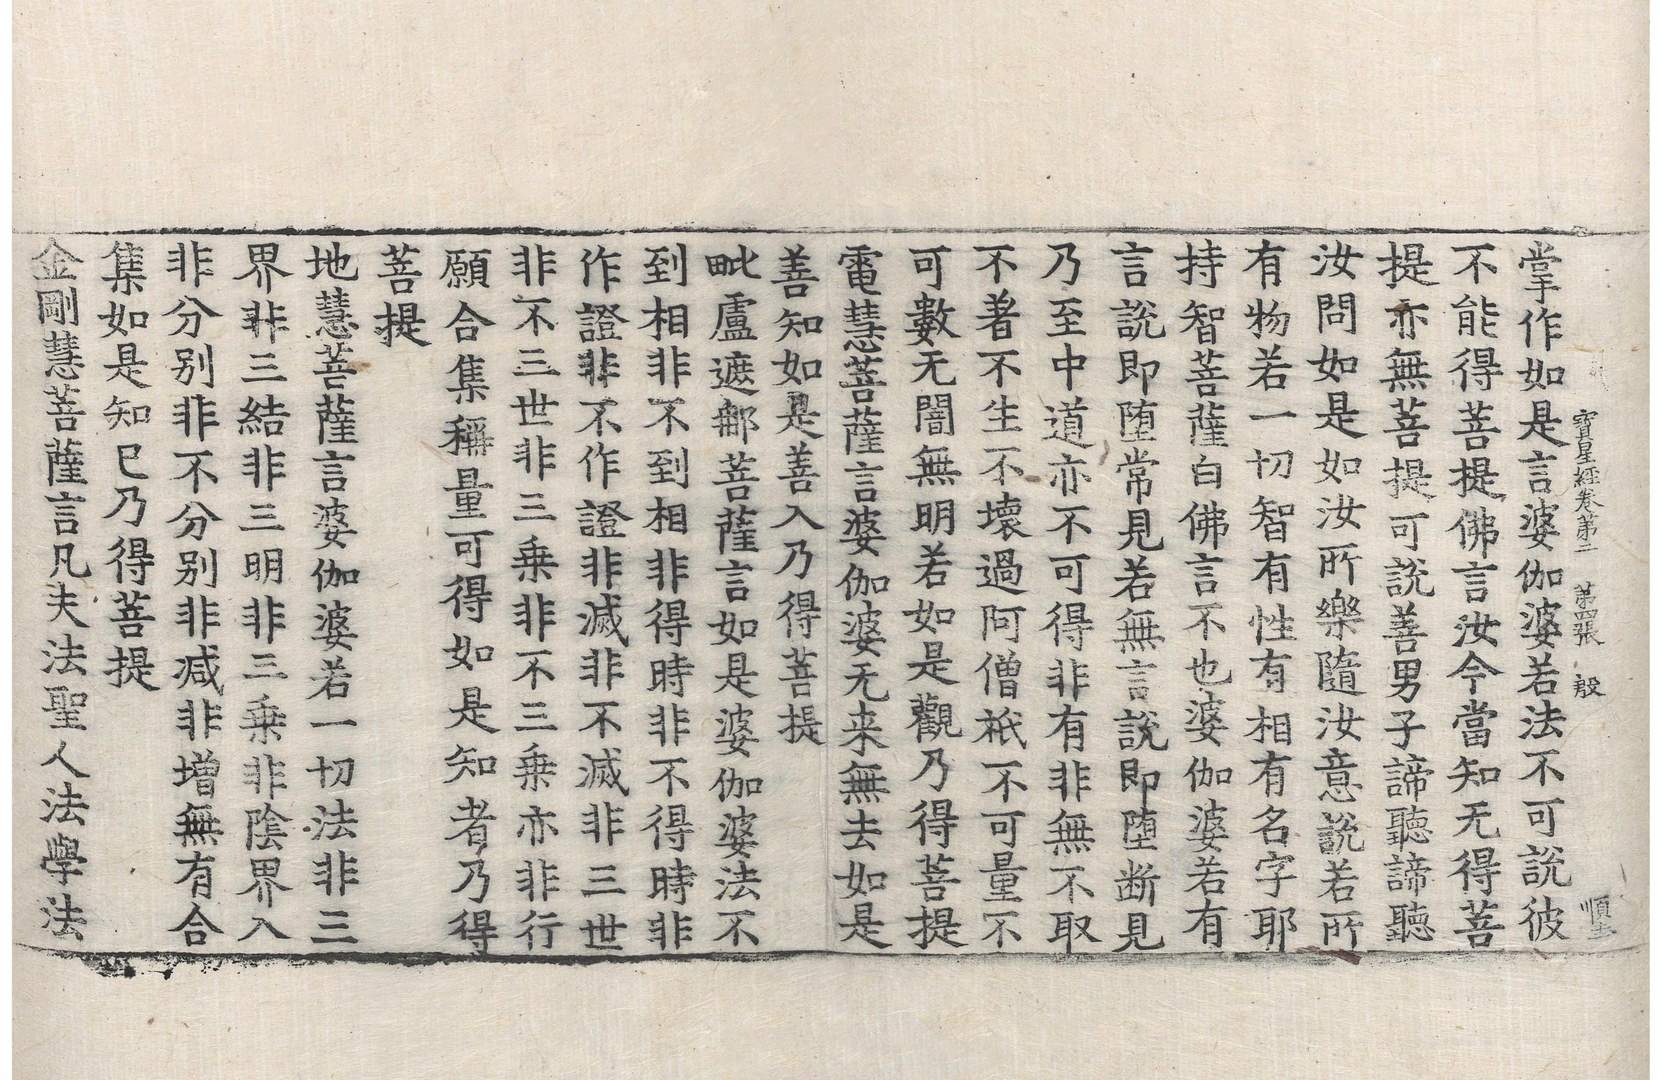 寶星經卷第二 第四張 殷
掌作如是言婆伽婆若法不可說彼
不能得菩提佛言汝今當知无得菩
提亦無菩提可說善男子諦聽諦聽
汝問如是如汝所樂隨汝意說若所
有物若一切智有性有相有名字耶
持智菩薩白佛言不也婆伽婆若有
言說即墮常見若無言說即墮断見
乃至中道亦不可得非有非無不取
不著不生不壞過阿僧祇不可量不
可數无闇無明若如是觀乃得菩提
電慧菩薩言婆伽婆无来無去如是
善知如是善入乃得菩提
毗盧遮那菩薩言如是婆伽婆法不
到相非不到相非得時非不得時非
作證非不作證非滅非不滅非三世
非不三世非三乗非不三乗亦非行
願合集稱量可得如是知者乃得
菩提
地慧菩薩言婆伽婆若一切法非三
界非三結非三明非三乗非陰界入
非分别非不分别非减非增無有合
集如是知已乃得菩提
金剛慧菩薩言凡夫法聖人法學法